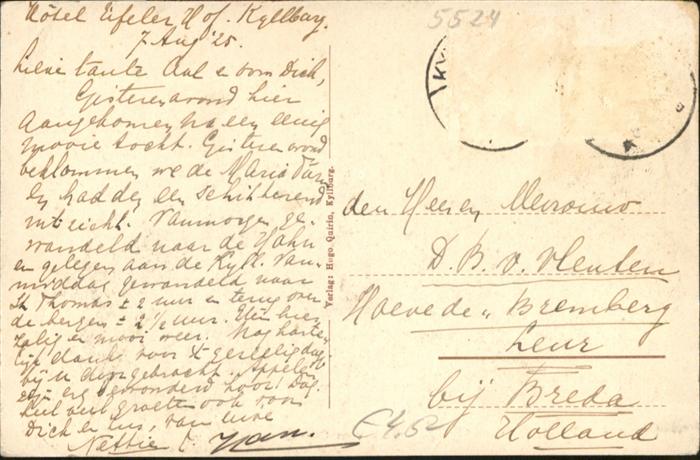 Hôtel Eifeler Hof. Kyllburg.
7 Aug '25.
Lieve tante Aal e oom Dick,
Gisteren avond hier
aangekomen na een enig
mooie tocht. Gisteren avond
beklommen we de Maria
en hadden een schitterend
uitzicht. Vanmorgen ge-
wandeld naar de Hahn
en gelegen aan de Kyll. Van-
middag gewandeld naar
St Thomas ± 2 uur en terug over
de bergen ± 2 1/2 uur. Hier
zalig en mooi weer. Nog harte-
lijk dank voor 't gezellig dag
bij u doorgebracht. Appelen
zijn erg bewonderd hoor! Dag.
heel veel groeten ook voor
Dick en van
Nattie Han.
Verlag: Hugo Quirin, Kyllburg.
5524
KY
den Heer en Mevrouw
D. B. v. Vleuten
Hoeve de „Bremberg
Leur
bij Breda
Holland
€4.5